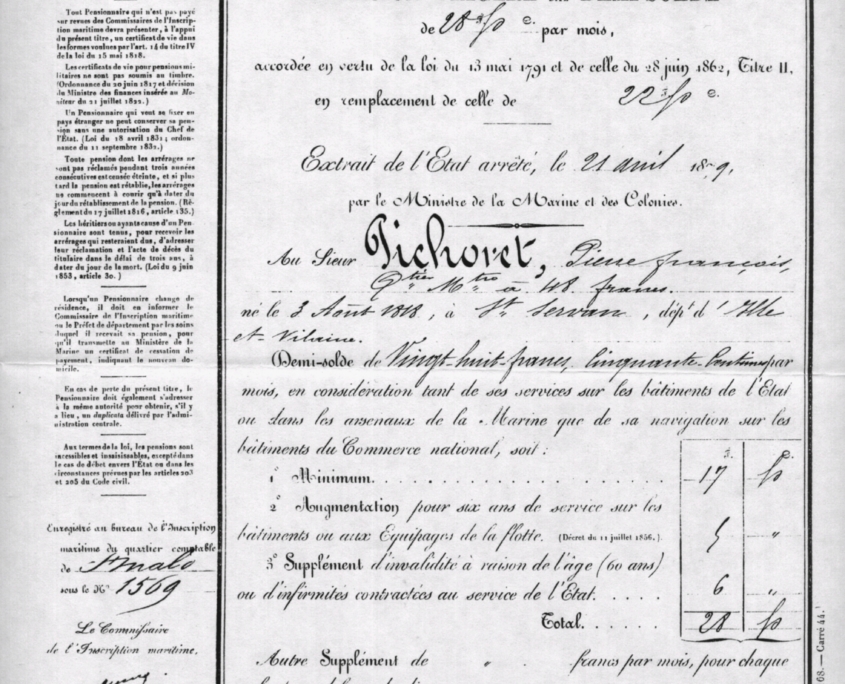 Tout Pensionnaire qui n'est pas payé
sur revues des Commissaires de l'Inscrip-
tion maritime devra présenter, à l'appui
du présent titre, un certificat de vie dans
les formes voulues par l'art. 14 du titre IV
de la loi du 15 mai 1818.
Les certificats de vie pour pensions mi-
litaires ne sont pas soumis au timbre.
(Ordonnance du 20 juin 1817 et décision
du Ministre des finances insérée au Mo-
niteur du 21 juillet 1822.)
Un Pensionnaire qui veut se fixer en
pays étranger ne peut conserver sa pen-
sion sans une autorisation du Chef de
l'État. (Loi du 18 avril 1831; ordon-
nance du 11 septembre 1832.)
Toute pension dont les arrérages ne
sont pas réclamés pendant trois années
consécutives est censée éteinte, et si plus
tard la pension est rétablie, les arrérages
ne commencent à courir qu'à dater du
jour du rétablissement de la pension. (Rè-
glement du 17 juillet 1816, article 135.)
Les héritiers ou ayants cause d'un Pen-
sionnaire sont tenus, pour recevoir les
arrérages qui resteraient dus, d'adresser
leur réclamation et l'acte de décès du
titulaire dans le délai de trois ans, à
dater du jour de la mort. (Loi du 9 juin
1853, article 30.)
Lorsqu'un Pensionnaire change de
résidence, il doit en informer le
Commissaire de l'Inscription maritime
ou le Préfet de département par les soins
duquel il recevait sa pension, pour
qu'il transmette au Ministère de la
Marine un certificat de cessation de
payement, indiquant le nouveau do-
micile.
En cas de perte du présent titre, le
Pensionnaire doit également s'adresser
à la même autorité pour obtenir, s'il y
a lieu, un duplicata délivré par l'admi-
nistration centrale.
Aux termes de la loi, les pensions sont
incessibles et insaisissables, excepté dans
le cas de débet envers l'État ou dans les
circonstances prévues par les articles 203
et 205 du Code civil.
Enregistré au bureau de l'Inscription
maritime du quartier comptable
de St malo
sous le N° 1569
Le Commissaire
de l'Inscription maritime,
de 28 f 50 c. par mois,
accordée en vertu de la loi du 13 mai 1791 et de celle du 28 juin 1862, Titre II,
en remplacement de celle de 22 f 50 c.
Extrait de l'État arrêté, le 21 avril 1879,
par le Ministre de la Marine et des Colonies.
Au Sieur Pichoret, Pierre françois,
Qtier Mtre à 48 francs.
né le 3 Août 1818, à St Servan, dépt d'Ille
et Vilaine.
Demi-solde de Vingt huit francs, Cinquante Centimes par
mois, en considération tant de ses services sur les bâtiments de l'État
ou dans les arsenaux de la Marine que de sa navigation sur les
bâtiments du Commerce national, soit :
1° Minimum. . . . . . . . . . . . . 17 50
2° Augmentation pour six ans de service sur les
bâtiments ou aux Équipages de la flotte. (Décret du 11 juillet 1856.). 5 "
3° Supplément d'invalidité à raison de l'âge (60 ans)
ou d'infirmités contractées au service de l'État. . . . 6 "
Total. . . . . 28 50
Autre Supplément de " francs par mois, pour chaque
68. — Carré 44.